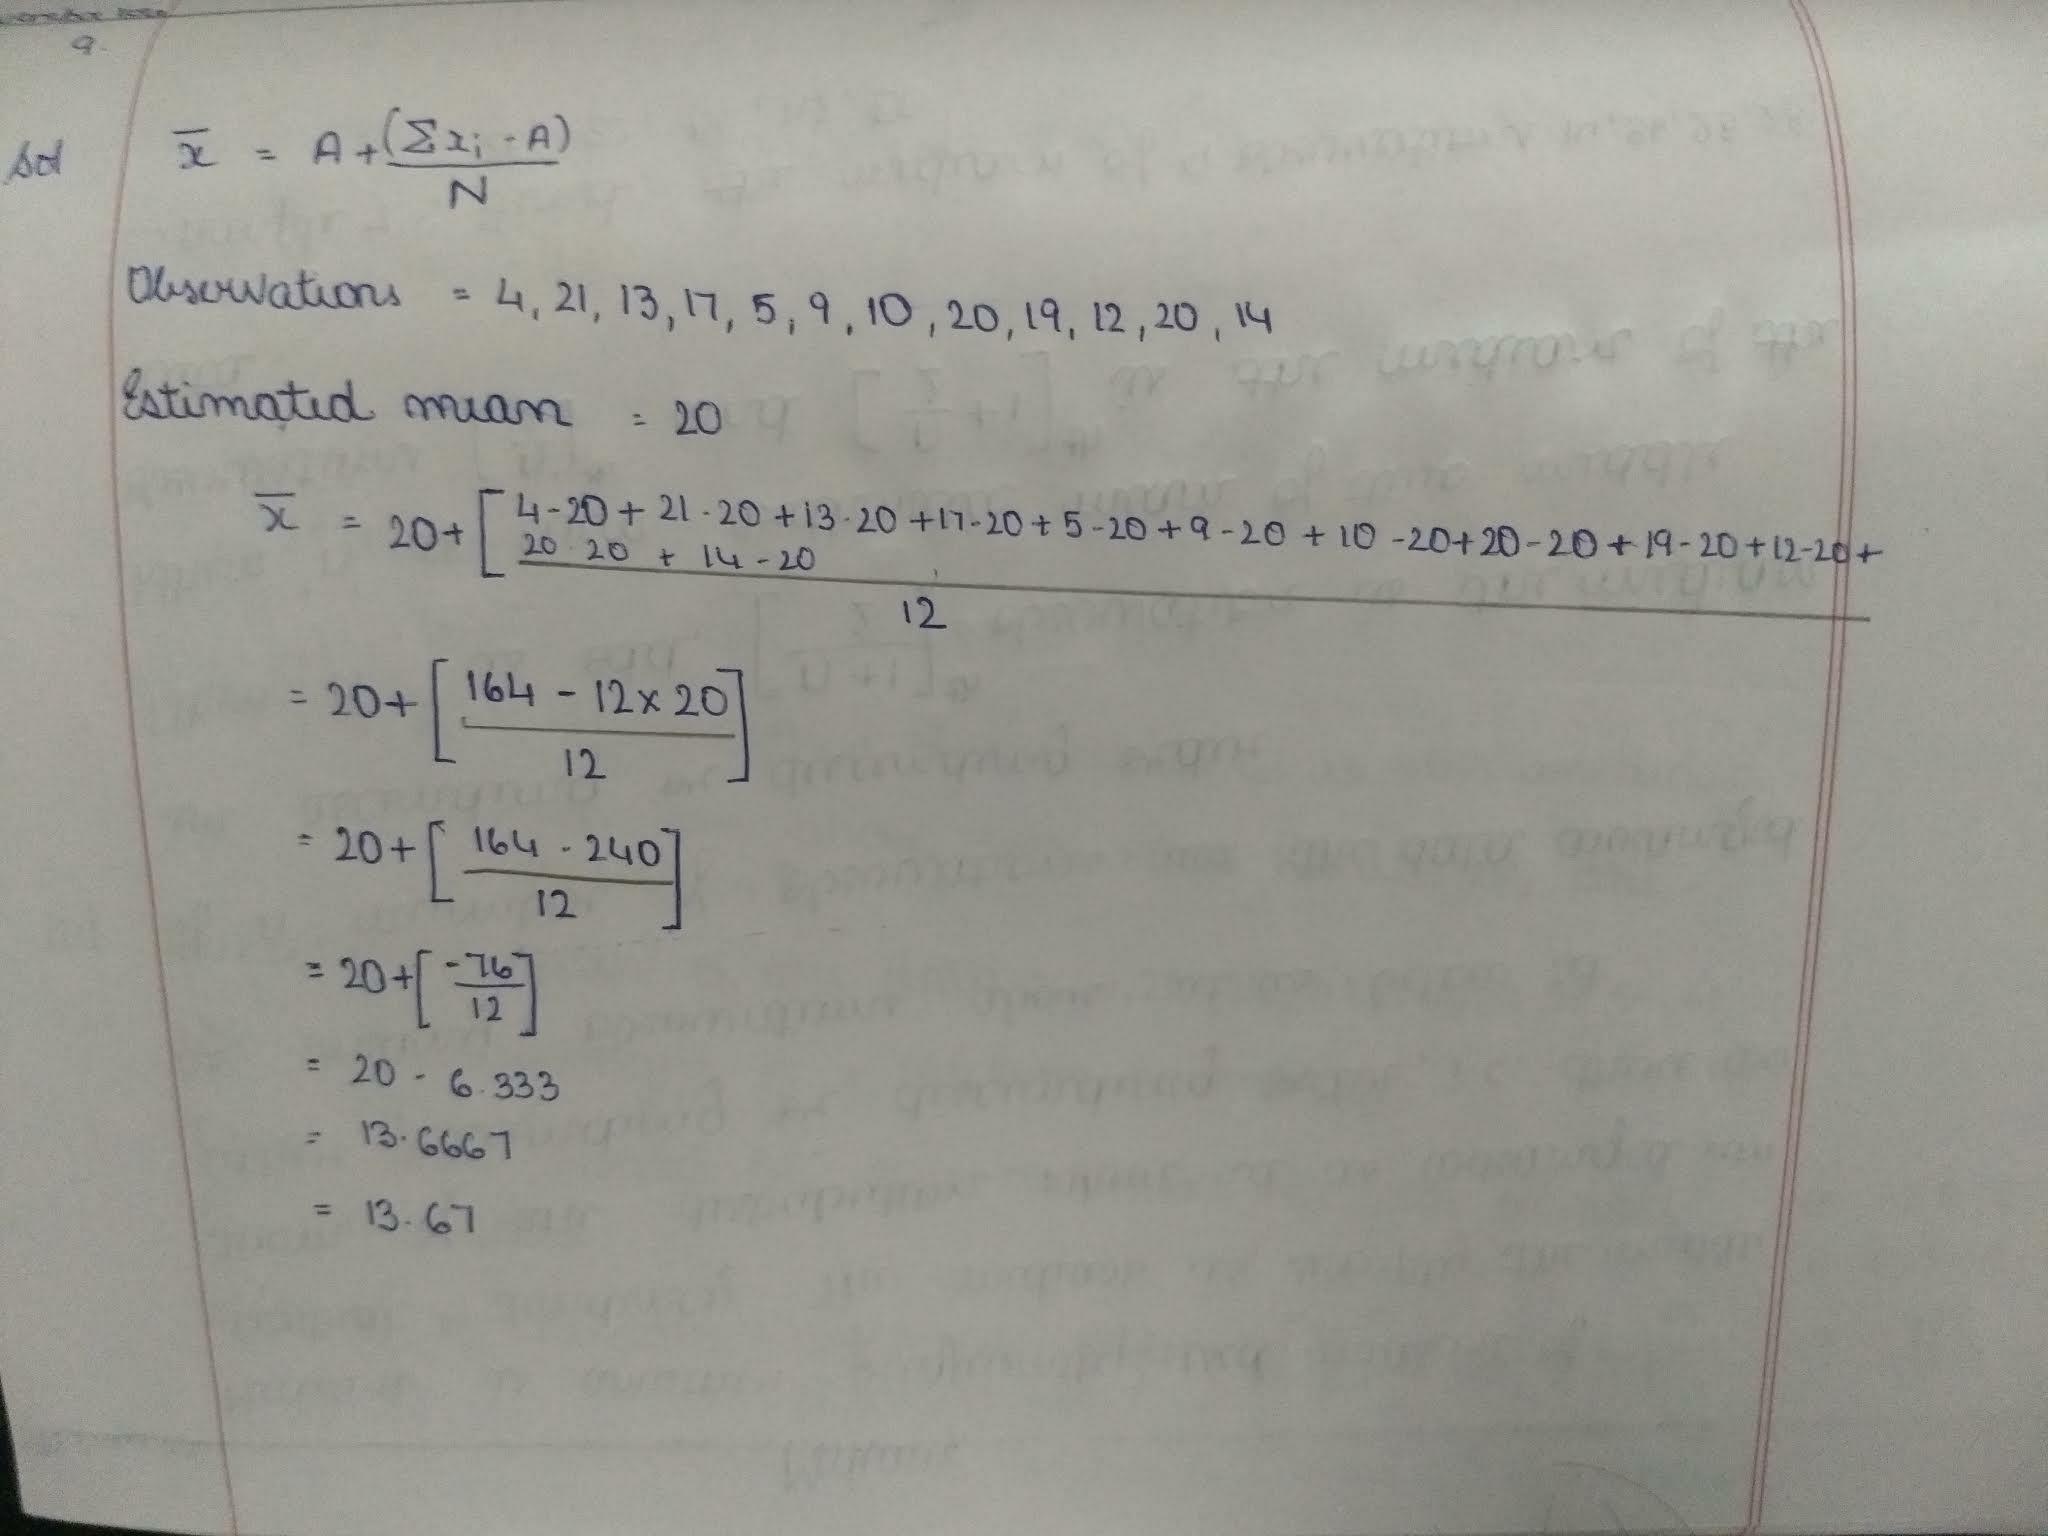 9.
Sol x̄ = A + (Σxi - A) / N
Observations = 4, 21, 13, 17, 5, 9, 10, 20, 19, 12, 20, 14
Estimated mean = 20
x̄ = 20 + [4-20 + 21-20 + 13-20 + 17-20 + 5-20 + 9-20 + 10-20 + 20-20 + 19-20 + 12-20 +
20-20 + 14-20
12
= 20 + [164 - 12 x 20 / 12]
= 20 + [164 - 240 / 12]
= 20 + [-76 / 12]
= 20 - 6.333
= 13.6667
= 13.67